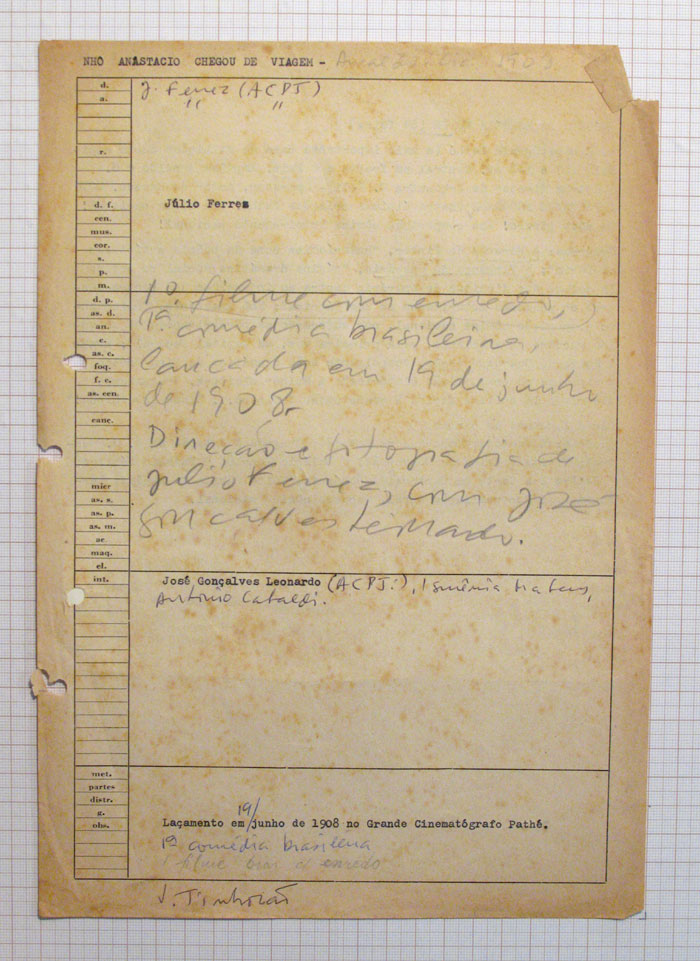 NHO ANASTACIO CHEGOU DE VIAGEM - 190
d. J. Ferrez (ACPJ)
a. " "
r.
d. f. Júlio Ferrez
cen.
mus.
cor.
s.
p.
m.
d. p. 1º. filme com enredo,
as. d. 1ª comédia brasileira,
an.
e.
as. c. lançada em 19 de junho
foq.
f. c.
as. cen. de 1908.
canç.
Direção e fotografia de
micr Julio Ferrez, com José
as. s.
as. p.
as. m. Gonçalves Leonardo.
ac
maq.
el.
int. José Gonçalves Leonardo (ACPJ.), Ismênia Mateus,
Antonio Cataldi.
met.
partes
distr.
g.
obs. Laçamento em 19/junho de 1908 no Grande Cinematógrafo Pathé.
1ª comédia brasileira
1 filme bras. c/ enredo
J. Tinhorão